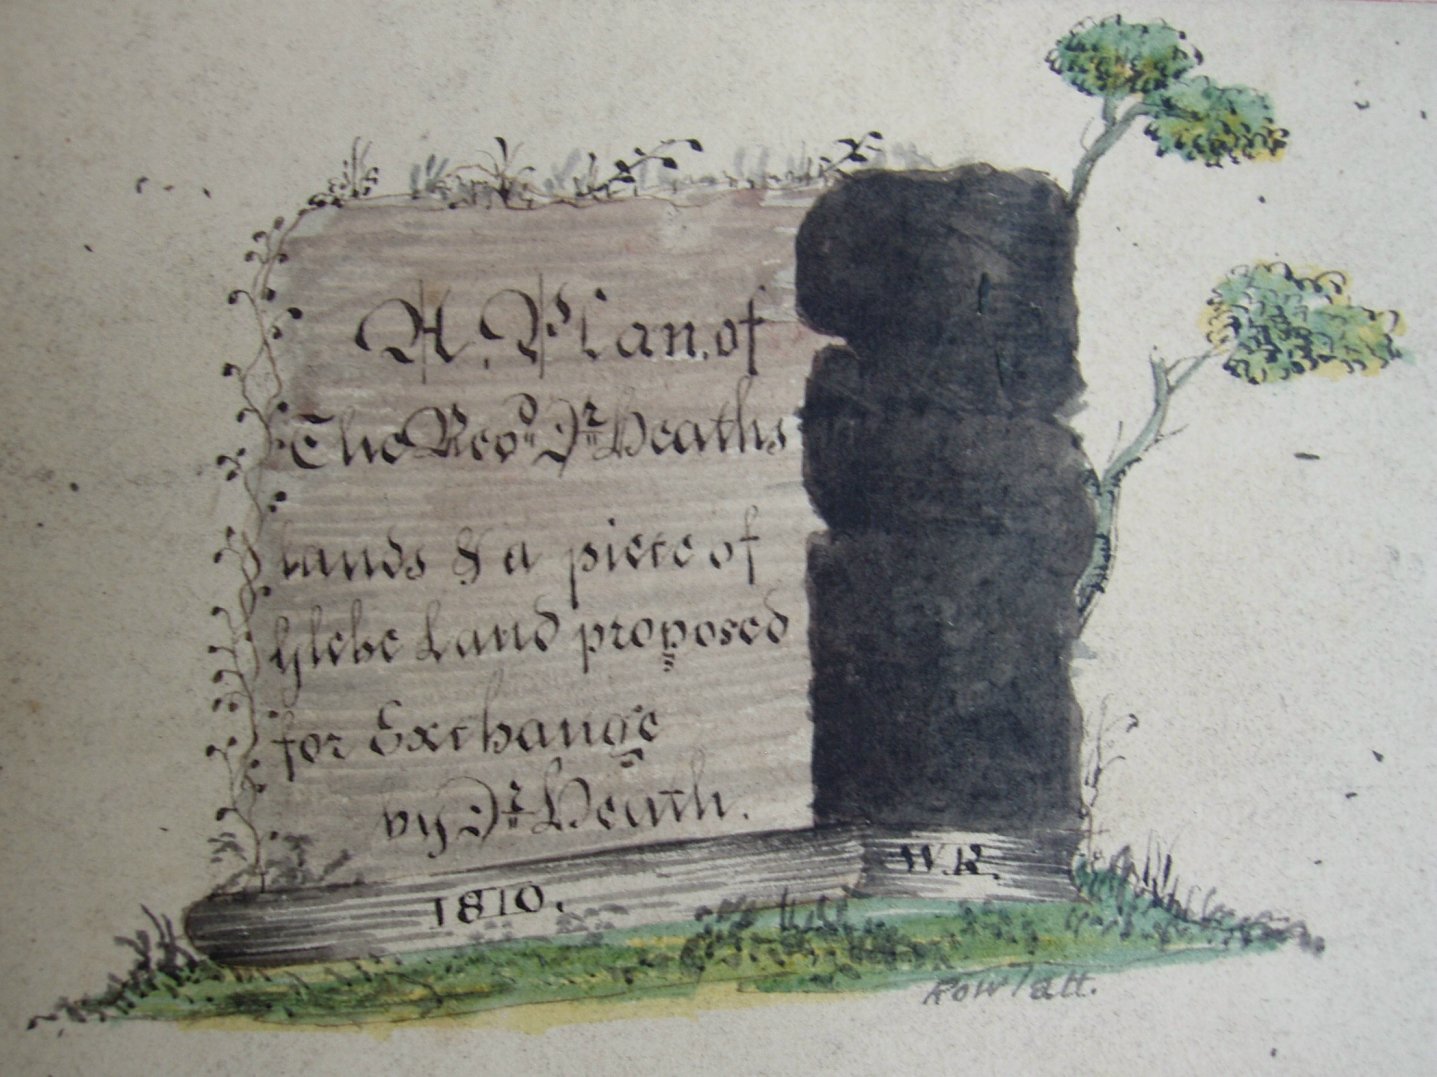 A Plan of
The Revd. Dr. Heaths
lands & a piece of
Glebe Land proposed
for Exchange
by Dr. Heath.
1810.
W.R.
Rowlatt.